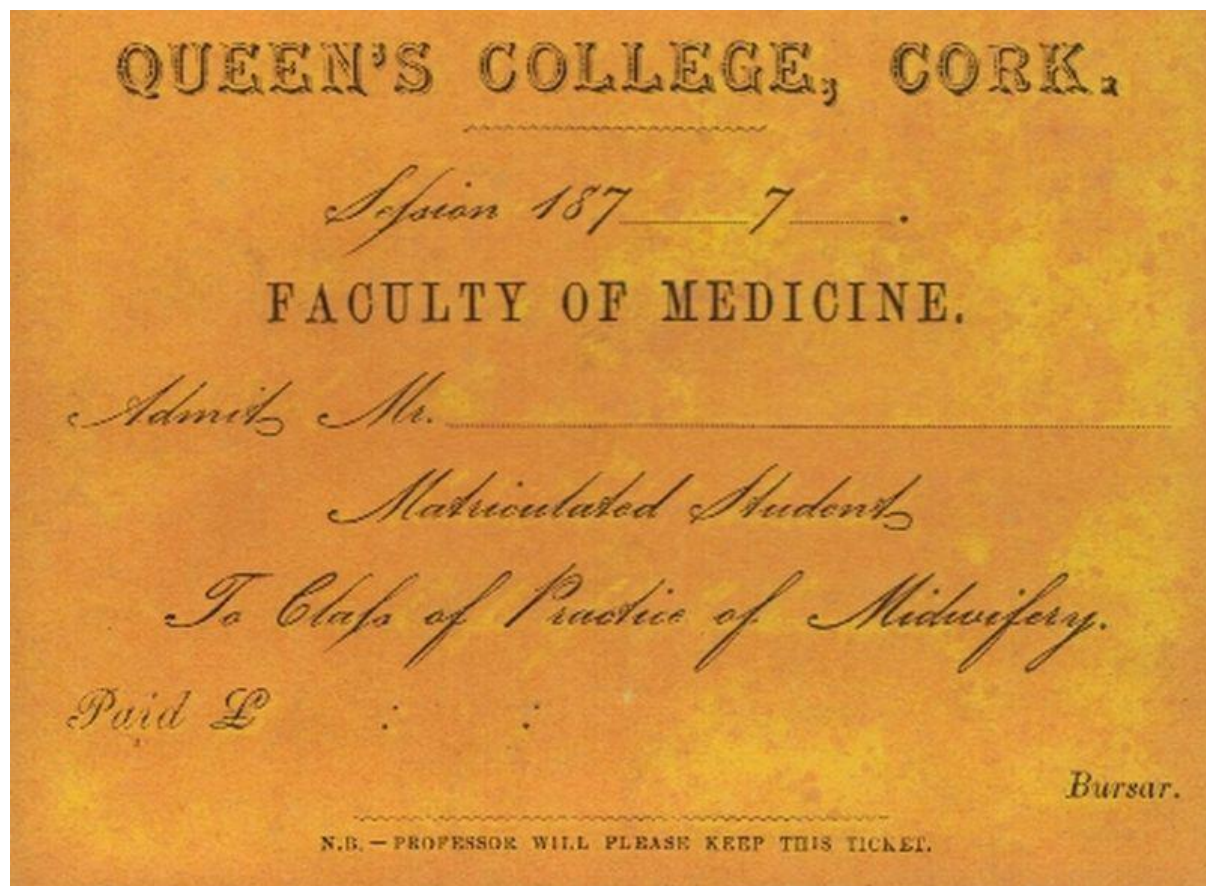 QUEEN'S COLLEGE, CORK.
Session 187 7 .
FACULTY OF MEDICINE.
Admit Mr.
Matriculated Student
To Class of Practice of Midwifery.
Paid £ : :
Bursar.
N.B.—PROFESSOR WILL PLEASE KEEP THIS TICKET.